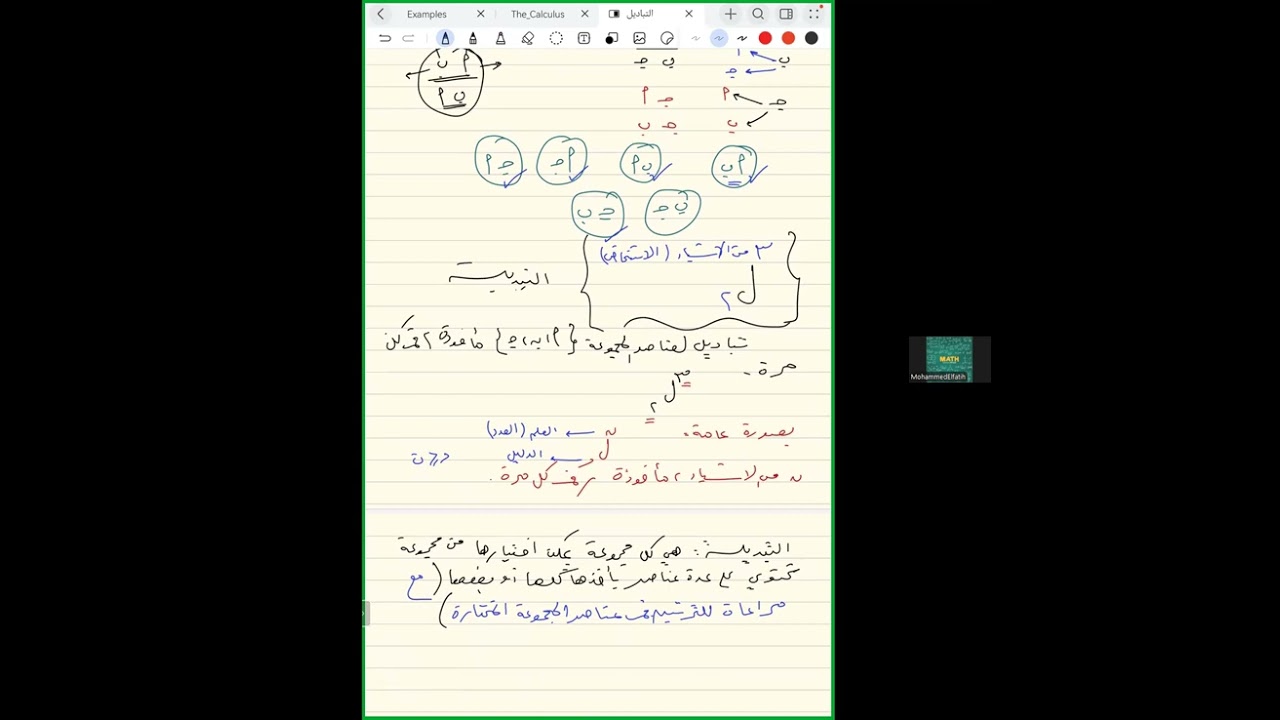 Examples
The_Calculus
التباديل
ب ← أ
ب ← جـ
ب جـ
أ ب
ب أ
جـ ← أ
جـ أ
جـ ← ب
جـ ب
أ ب
ب أ
أ جـ
جـ أ
ب جـ
جـ ب
٣ من الأشياء (الأشخاص)
ل٢
التبديلة
تباديل لعناصر المجموعة {أ، ب، جـ} مأخوذة ٢ في كل
مرة.
٣ل٢
بصورة عامة:
ن ← العلم (العدد)
ل
ر ← الدليل
ر ≤ ن
ن من الأشياء، مأخوذة ر في كل مرة.
التبديلة: هي كل مجموعة يمكن اختيارها من مجموعة
تحتوي على عدة عناصر يأخذها كلها أو بعضها (مع
مراعاة للترتيب في عناصر المجموعة المختارة)
MATH
MohammedElfatih